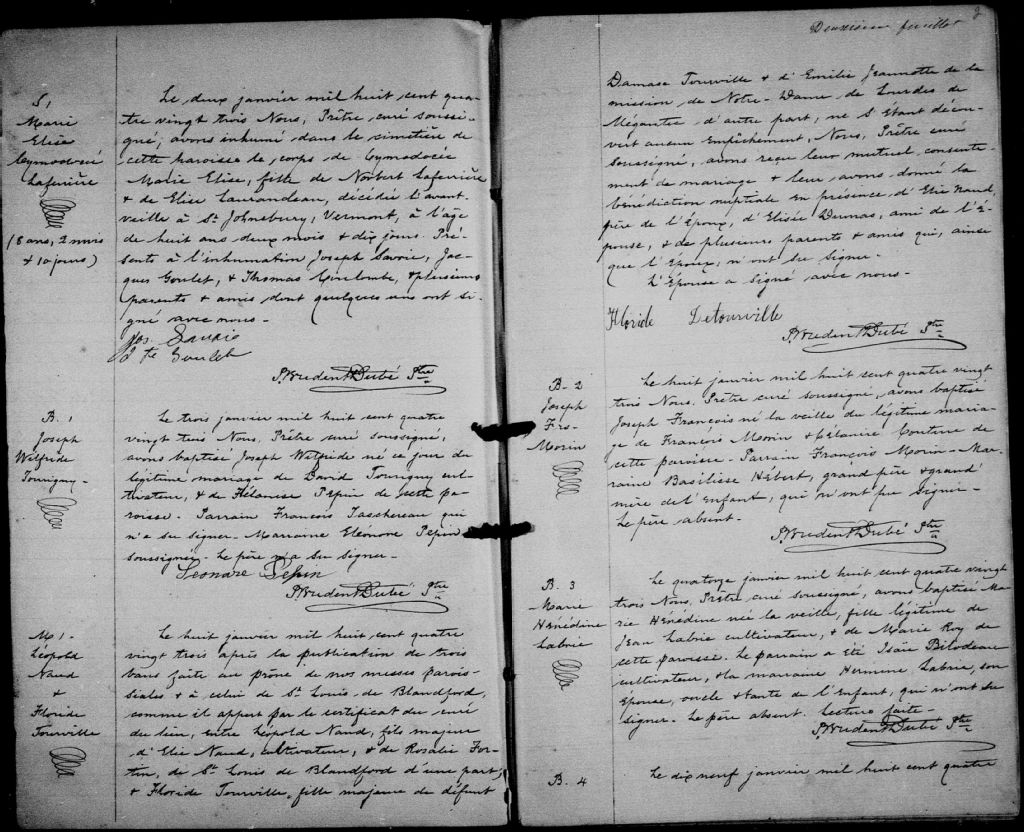 S. 1
Marie
Elise
Cymodocé
Laferrière
(8 ans, 2 mois
+ 10 jours)
Le deux janvier mil huit cent qua-
tre vingt trois Nous, Prêtre, curé soussi-
gné, avons inhumé dans le cimetière de
cette paroisse le corps de Cymodocée
Marie Elise, fille de Norbert Laferrière
+ de Elise Laurandeau, décédée l'avant-
veille à St. Johnsbury, Vermont, à l'âge
de huit ans deux mois + dix jours. Pré-
sents à l'inhumation Joseph Savoie, Jac-
ques Goulet, + Thomas Coulombe, + plusieurs
parents + amis dont quelques uns ont si-
gné avec nous.-
Jos. Savoie
J te Goulet
P. Prudent Dubé Ptre
B. 1
Joseph
Wilfride
Tourigny-
Le trois janvier mil huit cent quatre
vingt trois Nous, Prêtre curé soussigné,
avons baptisé Joseph Wilfride né ce jour du
légitime mariage de David Tourigny cul-
tivateur, + de Mélanise Pepin de cette pa-
roisse. Parrain François Taschereau qui
n'a su signer- Marraine Eléonore Pepin
soussignée- Le père n'a su signer-
Leonore Pepin
P. Prudent Dubé Ptre
M. 1-
Léopold
Naud
+
Floride
Tourville
Le huit janvier mil huit cent quatre
vingt trois après la publication de trois
bans faite au prône de nos messes parois-
siales + à celui de St. Louis de Blandford,
comme il appert par le certificat du curé
du lieu, entre Léopold Naud, fils majeur
d'Elie Naud, cultivateur, + de Rosalie For-
tin, de St. Louis de Blandford d'une part,
+ Floride Tourville, fille majeure de défunt
Deuxième feuillet 2
Damase Tourville + d'Emilie Jeannotte de la
mission de Notre-Dame de Lourdes de
Mégantic d'autre part, ne s'étant décou-
vert aucun Empêchement, Nous, Prêtre curé
soussigné, avons reçu leur mutuel consente-
ment de mariage + leur avons donné la
bénédiction nuptiale en présence d'Elie Naud,
père de l'Époux, d'Elisée Dumas, ami de l'É-
pouse, + de plusieurs parents + amis qui, ainsi
que l'Epoux, n'ont su signer-
L'Epouse a signé avec nous-
Floride Detourville
P. Prudent Dubé Ptre
B. 2
Joseph
Frs-
Morin
Le huit janvier mil huit cent quatre vingt
trois Nous, Prêtre curé soussigné, avons baptisé
Joseph François né la veille du légitime maria-
ge de François Morin + Célanire Couture de
cette paroisse- Parrain François Morin- Mar-
raine Basilisse Hébert, grand père + grand'
mère de l'Enfant, qui n'ont pu signer-
Le père absent.
P. Prudent Dubé Ptre
B. 3
Marie
Hénédine
Labrie
Le quatorze janvier mil huit cent quatre vingt
trois Nous, Prêtre curé soussigné, avons baptisé Ma-
rie Hénédine née la veille, fille légitime de
Jean Labrie cultivateur, + de Marie Roy de
cette paroisse. Le parrain a été Isaïe Bilodeau
cultivateur, + la marraine Hermine Labrie, son
Epouse, oncle + tante de l'Enfant, qui n'ont su
signer- Le père absent. Lecture faite-
P. Prudent Dubé Ptre
B. 4
Le dix neuf janvier mil huit cent quatre